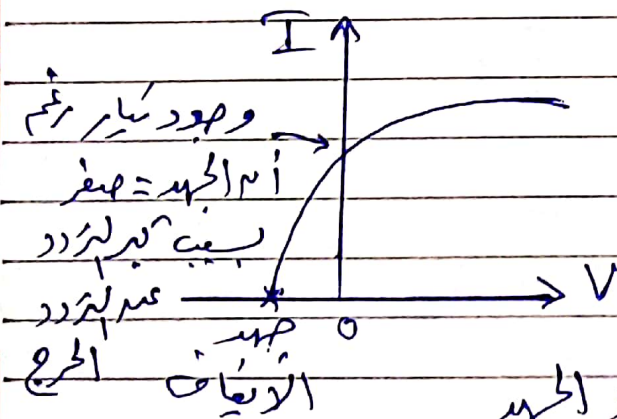 I
وجود تيار رغم
أن الجهد = صفر
بسبب كبر التردد
عن التردد
الحرج
V
0
جهد
الإيقاف
الجهد